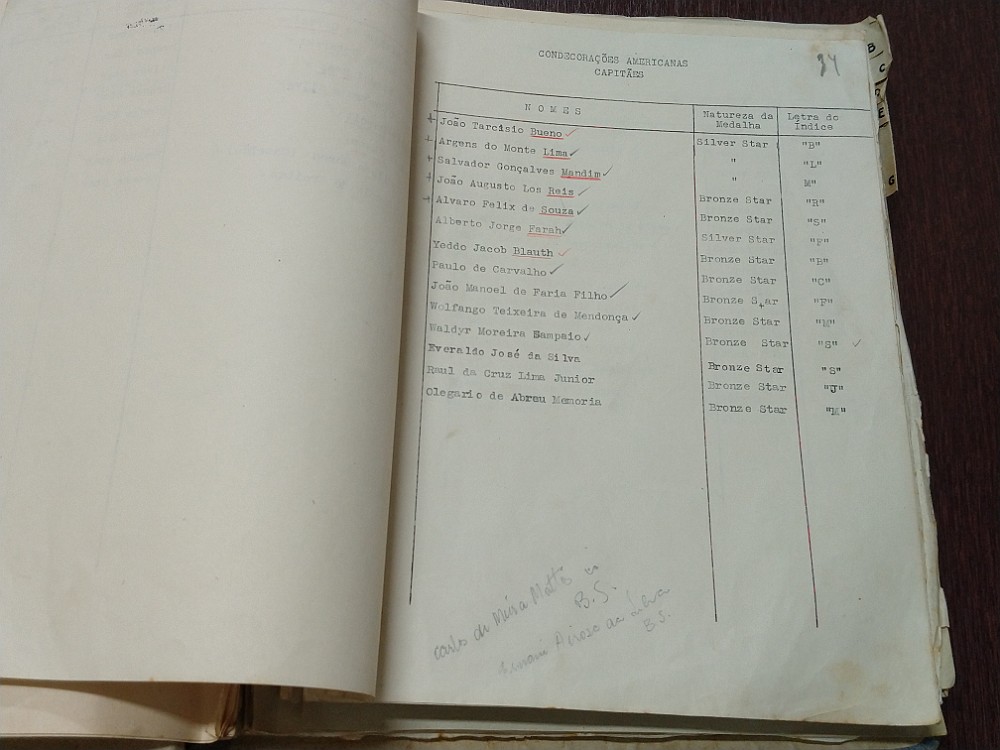 CONDECORAÇÕES AMERICANAS
CAPITÃES
34
N O M E S Natureza da Medalha Letra do Índice
João Tarcísio Bueno Silver Star "B"
Argens do Monte Lima " "L"
Salvador Gonçalves Mandim " M"
João Augusto Los Reis Bronze Star "R"
Alvaro Felix de Souza Bronze Star "S"
Alberto Jorge Farah Silver Star "F"
Yeddo Jacob Blauth Bronze Star "B"
Paulo de Carvalho Bronze Star "C"
João Manoel de Faria Filho Bronze Star "F"
Wolfango Teixeira de Mendonça Bronze Star "M"
Waldyr Moreira Sampaio Bronze Star "S"
Everaldo José da Silva Bronze Star "S"
Raul da Cruz Lima Junior Bronze Star "J"
Olegario de Abreu Memoria Bronze Star "M"
Carlos de Meira Mattos
B.S.
Airosa da Silva
B.S.
B
C
E
G